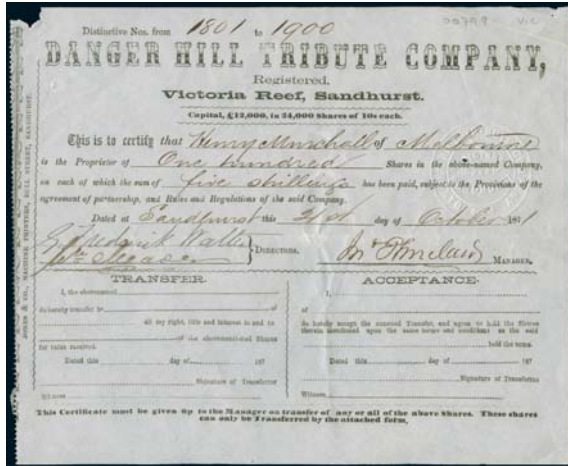 00799 VIC
Distinctive Nos. from 1801 to 1900
DANGER HILL TRIBUTE COMPANY,
Registered.
Victoria Reef, Sandhurst.
Capital, £12,000, in 24,000 Shares of 10s each.
This is to certify that Henry Marshall of Melbourne
is the Proprietor of One hundred Shares in the above-named Company,
on each of which the sum of five shillings has been paid, subject to the Provisions of the
agreement of partnership, and Rules and Regulations of the said Company.
Dated at Sandhurst this day of October 1871
Frederick
DIRECTORS.
MANAGER.
TRANSFER.
I, the abovenamed
do hereby transfer to of
all my right, title and interest in and to
of the abovementioned Shares
for value received.
Dated this day of 187
Signature of Transferror
Witness
ACCEPTANCE.
I,
of
do hereby accept the annexed Transfer, and agree to hold the Shares
therein mentioned upon the same terms and conditions as the said
held the same.
Dated this day of 187
Signature of Transferee
Witness
This Certificate must be given up to the Manager on transfer of any or all of the above Shares. These shares
can only be Transferred by the attached form.
JONES & CO., MACHINE PRINTERS, BULL STREET, SANDHURST.